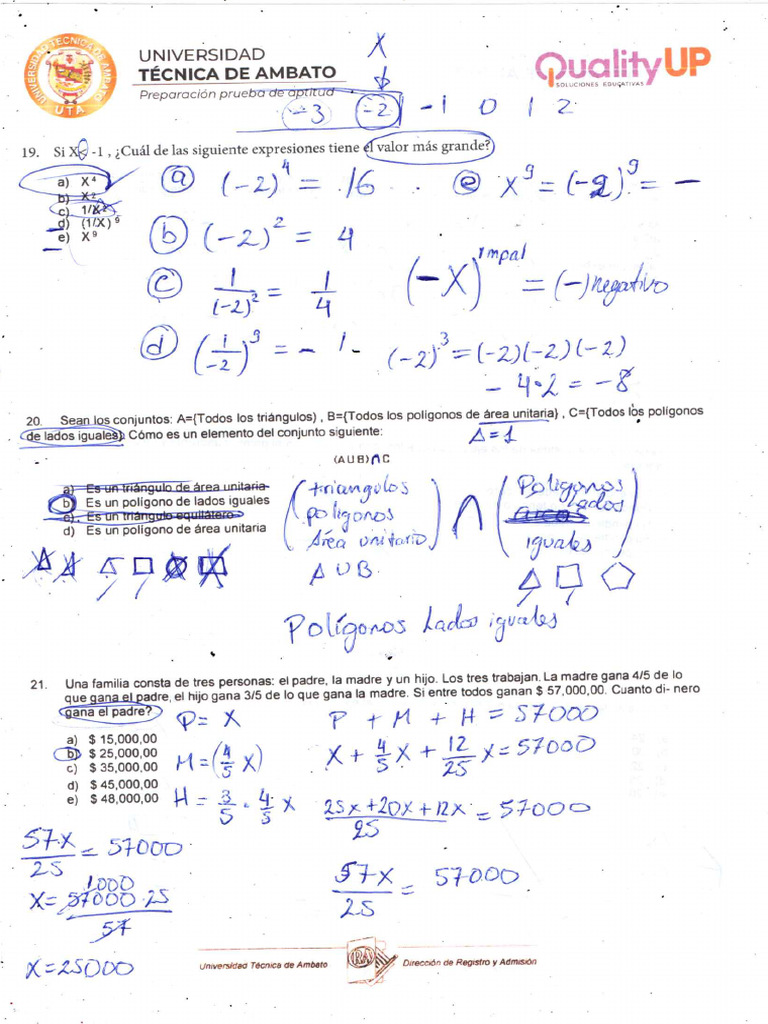 UNIVERSIDAD TÉCNICA DE AMBATO
UTA
UNIVERSIDAD
TÉCNICA DE AMBATO
Preparación prueba de aptitud
QualityUP
SOLUCIONES EDUCATIVAS
X
-3 -2 -1 0 1 2
19. Si X< -1 , ¿Cuál de las siguiente expresiones tiene el valor más grande?
a) X⁴
b) X²
c) 1/X²
d) (1/X)⁹
e) X⁹
a (-2)⁴ = 16
b (-2)² = 4
c 1/(-2)² = 1/4
d (1/-2)⁹ = - 1-
e X⁹ = (-2)⁹ = -
(-X)^impal = (-) negativo
(-2)³ = (-2)(-2)(-2)
- 4·2 = -8
20. Sean los conjuntos: A={Todos los triángulos} , B={Todos los polígonos de área unitaria} , C={Todos los polígonos
de lados iguales}. Cómo es un elemento del conjunto siguiente:
Δ=1
(A U B)∩C
a) Es un triángulo de área unitaria
b) Es un polígono de lados iguales
c) Es un triángulo equilátero
d) Es un polígono de área unitaria
(triangulos
polígonos
Área unitario)
A U B.
∩
(Poligonos
lados
iguales)
Polígonos Lados iguales
21. Una familia consta de tres personas: el padre, la madre y un hijo. Los tres trabajan. La madre gana 4/5 de lo
que gana el padre, el hijo gana 3/5 de lo que gana la madre. Si entre todos ganan $ 57,000,00. Cuanto di- nero
gana el padre?
a) $ 15,000,00
b) $ 25,000,00
c) $ 35,000,00
d) $ 45,000,00
e) $ 48,000,00
P = X
M = (4/5 X)
H = 3/5 · 4/5 X
P + M + H = 57000
X + 4/5 X + 12/25 X = 57000
25X+20X+12X/25 = 57000
57X/25 = 57000
57X/25 = 57000
1000
X = 57000·25/57
X = 25000
Universidad Técnica de Ambato
Dirección de Registro y Admisión